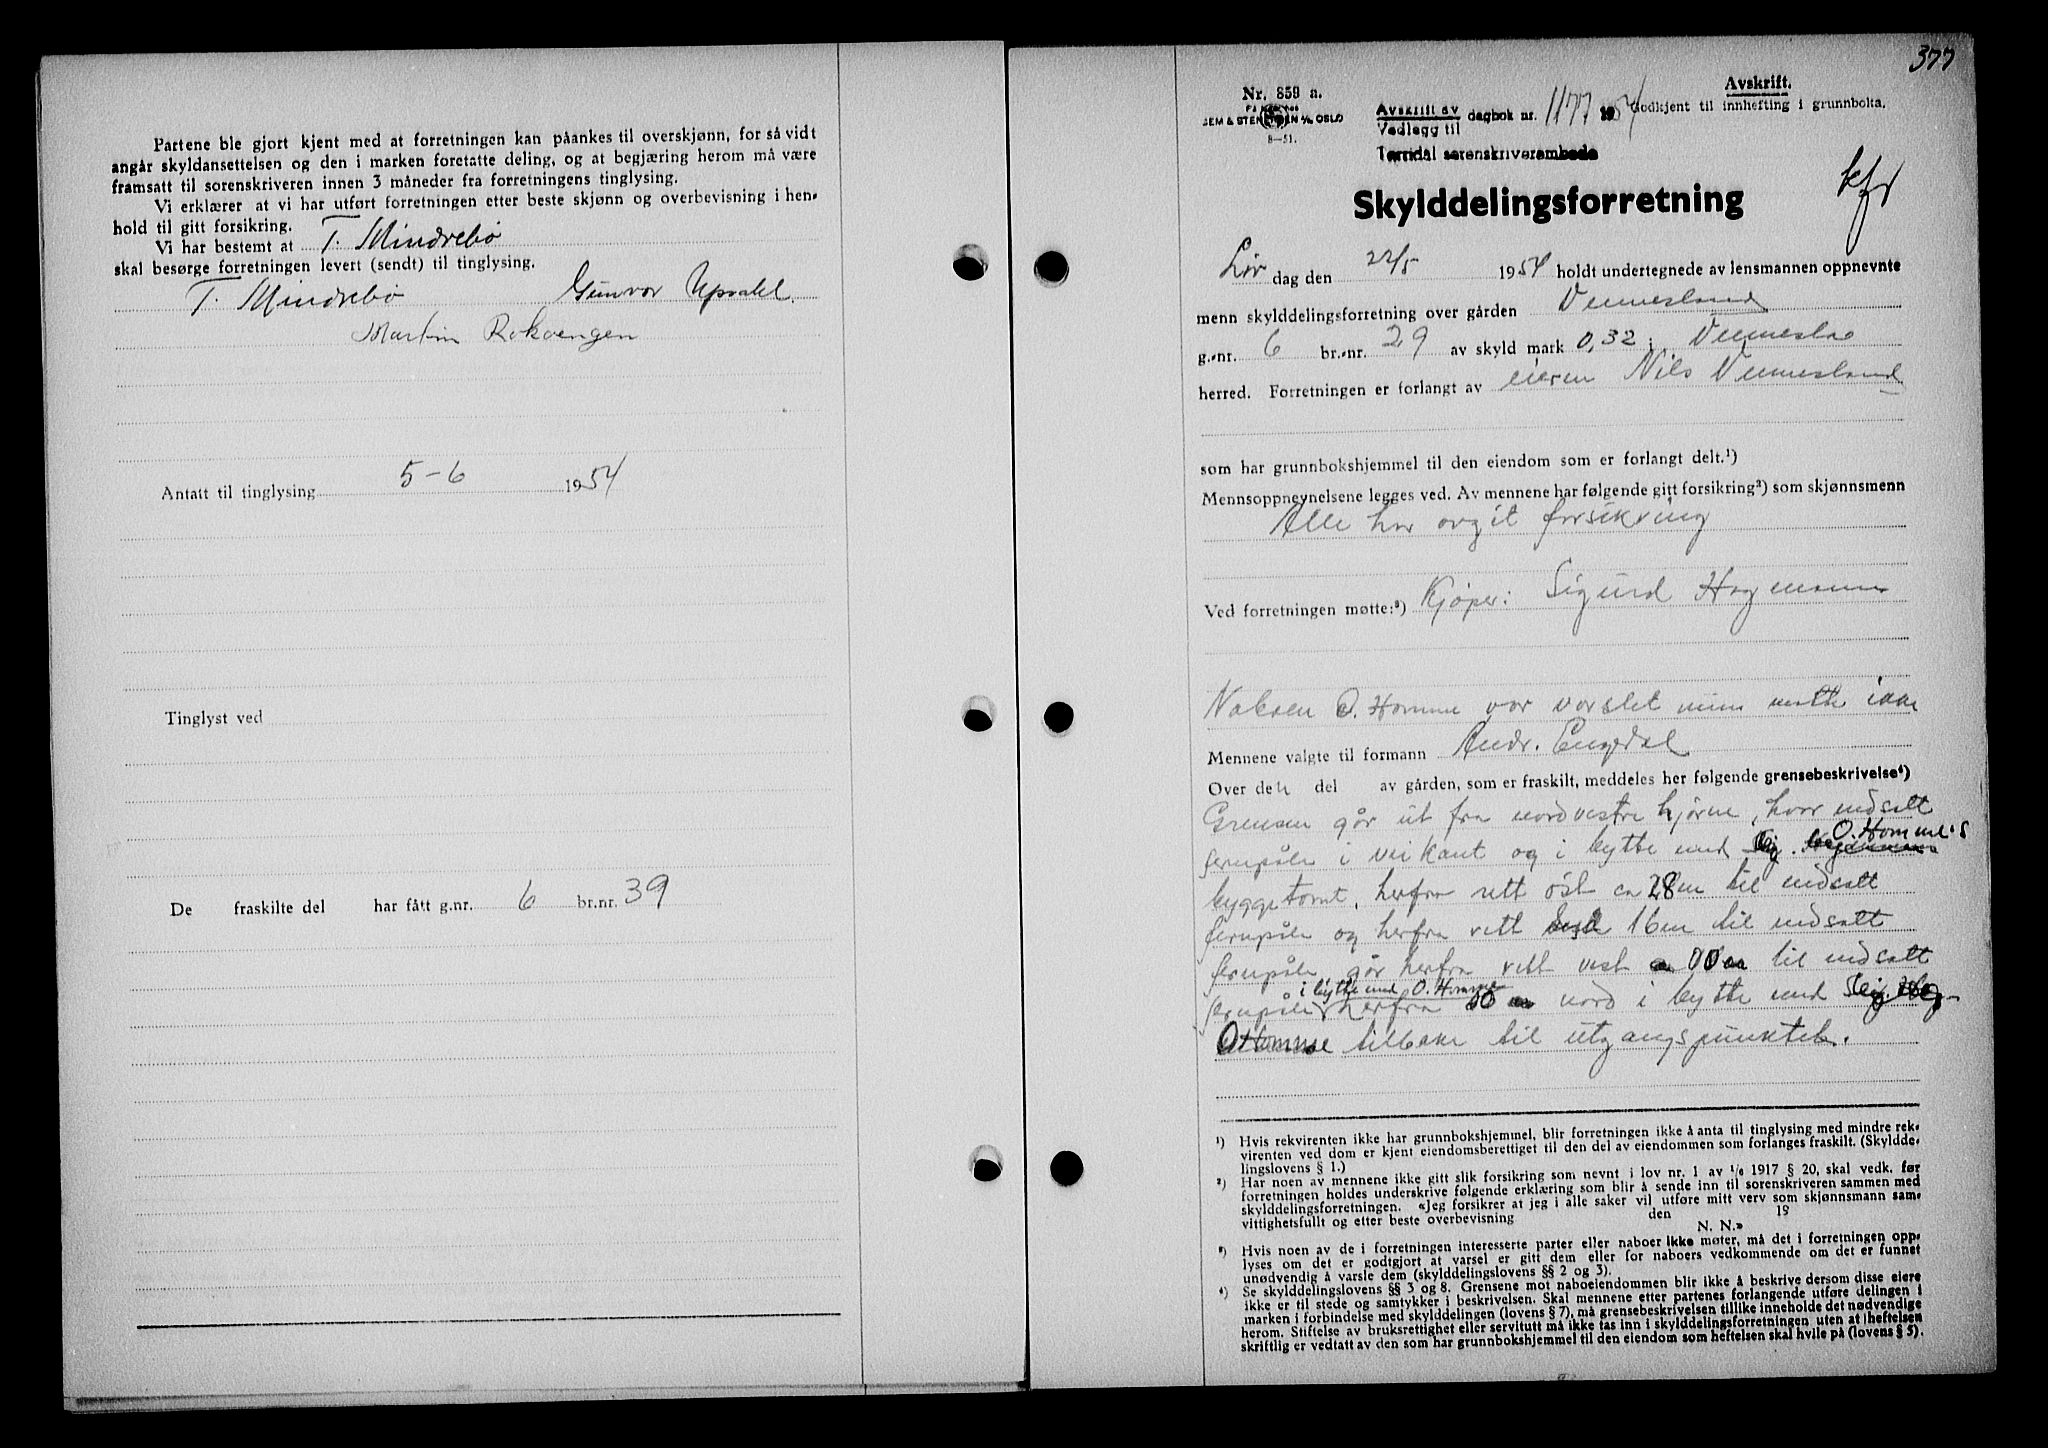 Partene ble gjort kjent med at forretningen kan påankes til overskjønn, for så vidt
angår skyldansettelsen og den i marken foretatte deling, og at begjæring herom må være
framsatt til sorenskriveren innen 3 måneder fra forretningens tinglysing.
Vi erklærer at vi har utført forretningen etter beste skjønn og overbevisning i hen-
hold til gitt forsikring.
Vi har bestemt at T. Mindrebø
skal besørge forretningen levert (sendt) til tinglysing.
T. Mindrebø Gunvor Upsahl.
Martin Rokoengen
Antatt til tinglysing 5-6 1954
Tinglyst ved
De fraskilte del har fått g.nr. 6 br.nr. 39
377
Nr. 859 a.
SEM & STENERSEN A/S OSLO
8-51.
Avskrift.
Avskrift av
Vedlegg til dagbok nr. 1177 1954 Godkjent til innhefting i grunnboka.
Torridal sorenskriverembede
kfr
Skylddelingsforretning
Lør dag den 22/5 1954 holdt undertegnede av lensmannen oppnevnte
menn skylddelingsforretning over gården Vennesland
g.-nr. 6 br.-nr. 29 av skyld mark 0,32 i Vennesla
herred. Forretningen er forlangt av eieren Nils Vennesland
som har grunnbokshjemmel til den eiendom som er forlangt delt.¹)
Mennsoppnevnelsene legges ved. Av mennene har følgende gitt forsikring²) som skjønnsmenn
Alle har avgit forsikring
Ved forretningen møtte:³) Kjøper: Sigurd Hagemann
Naboen O. Homme var varslet men møtte ikke
Mennene valgte til formann Andr. Engedal
Over den del av gården, som er fraskilt, meddeles her følgende grensebeskrivelse⁴)
Grensen går ut fra nordvestre hjørne, hvor nedsatt
jernpåle i veikant og i bytte med O. Homme's
byggetomt, herfra rett øst ca 28 m til nedsatt
jernpåle og herfra rett 16 m til nedsatt
jernpåle, går herfra rett vest til nedsatt
i bytte med O. Homme
jernpåle herfra nord i bytte med
O Homme tilbake til utgangspunktet.
¹) Hvis rekvirenten ikke har grunnbokshjemmel, blir forretningen ikke å anta til tinglysing med mindre rek-
virenten ved dom er kjent eiendomsberettiget til den del av eiendommen som forlanges fraskilt. (Skyldde-
lingslovens § 1.)
²) Har noen av mennene ikke gitt slik forsikring som nevnt i lov nr. 1 av 1/6 1917 § 20, skal vedk. før
forretningen holdes underskrive følgende erklæring som blir å sende inn til sorenskriveren sammen med
skylddelingsforretningen. «Jeg forsikrer at jeg i alle saker vil utføre mitt verv som skjønnsmann sam-
vittighetsfullt og etter beste overbevisning den 19
N. N.»
³) Hvis noen av de i forretningen interesserte parter eller naboer ikke møter, må det i forretningen opp-
lyses om det er godtgjort at varsel er gitt dem eller for naboers vedkommende om det er funnet
unødvendig å varsle dem (skylddelingslovens §§ 2 og 3).
⁴) Se skylddelingslovens §§ 3 og 8. Grensene mot naboeiendommen blir ikke å beskrive dersom disse eiere
ikke er til stede og samtykker i beskrivelsen. Skal mennene etter partenes forlangende utføre delingen i
marken i forbindelse med skylddelingen (lovens § 7), må grensebeskrivelsen tillike inneholde det nødvendige
herom. Stiftelse av bruksrettighet eller servitutt må ikke tas inn i skylddelingsforretningen uten at heftelsen
skriftlig er vedtatt av den som har grunnbokshjemmel til den eiendom som heftelsen skal hvile på (lovens § 5).